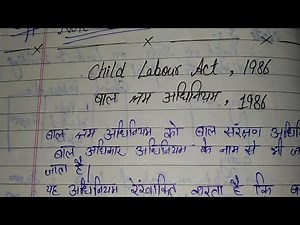 Child Labour Act, 1986
बाल श्रम अधिनियम, 1986
बाल श्रम अधिनियम को बाल संरक्षण
बाल अधिकार अधिनियम के नाम से भी
जाता है।
यह अधिनियम रेखांकित करता है कि